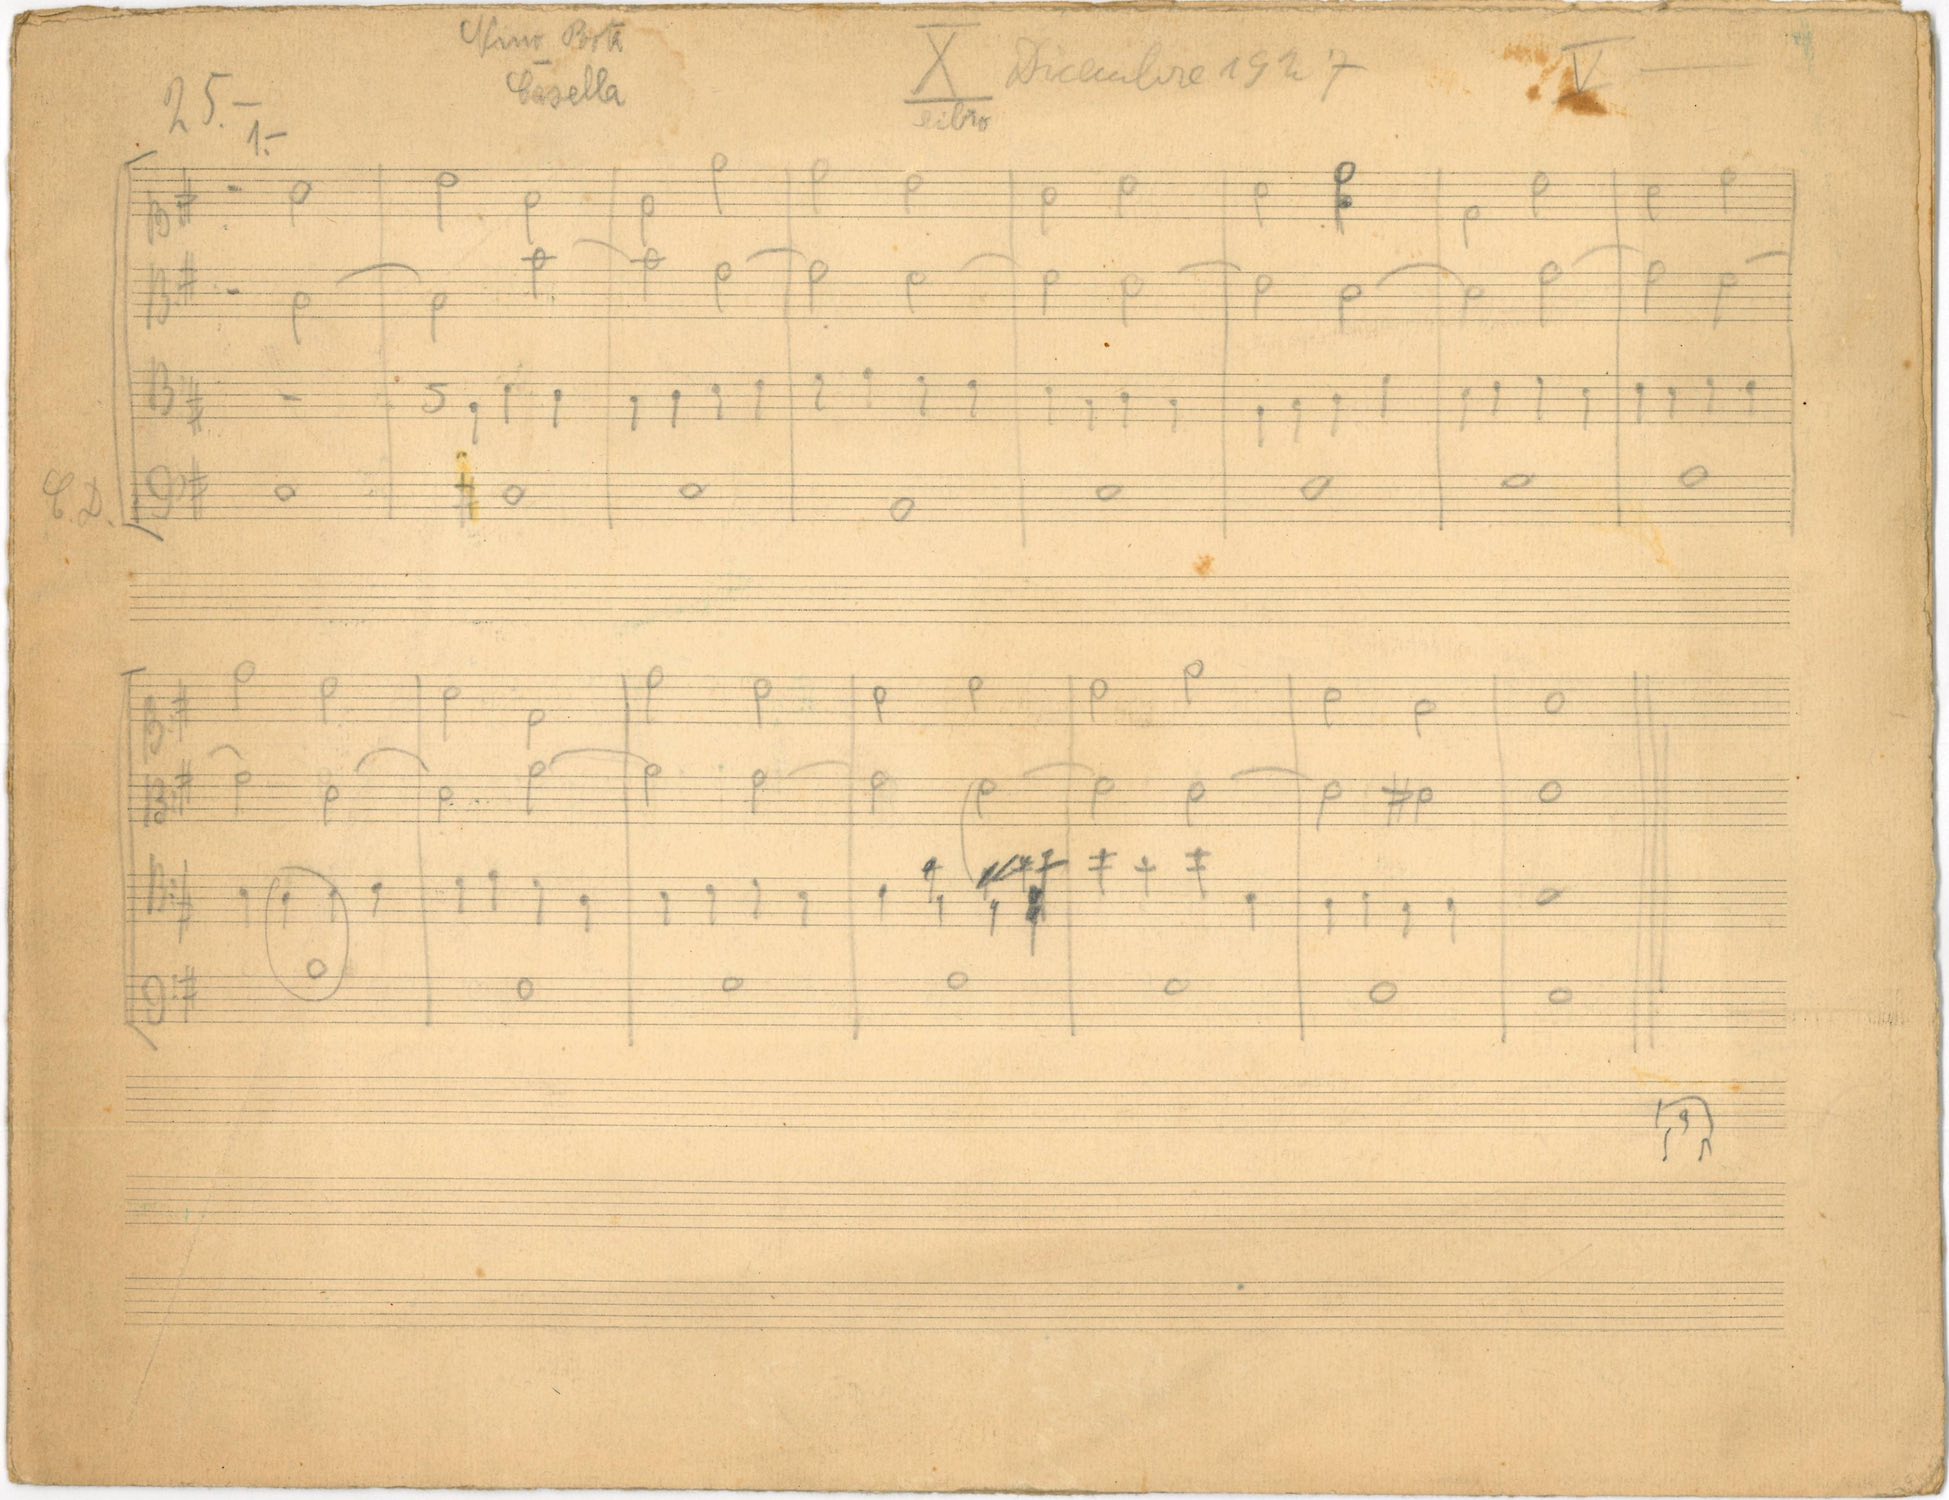 Nino Rota
Casella
X
libro
Dicembre 1927
V
25.-
1.-
C.D.